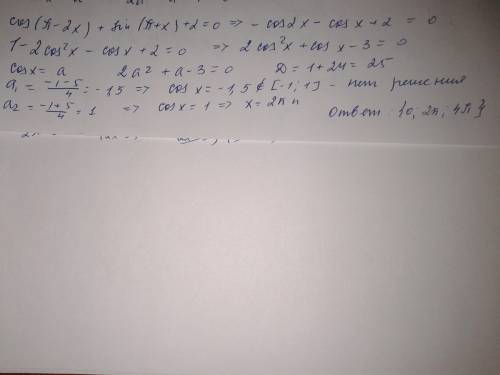 cos(π-2x) + sin(π+x)+2=0 => - cos2x - cosx+2 = 0
1-2cos²x - cosx+2=0 => 2cos²x+cosx-3=0
cosx= a 2a²+a-3=0 D=1+24=25
a₁ = (-1-5)/4 = -1.5 => cos x=-1,5 ∉ [-1; 1] - нет решения
a₂ = (-1+5)/4 = 1 => cosx=1 => x=2πn Ответ: {0; 2π; 4π}